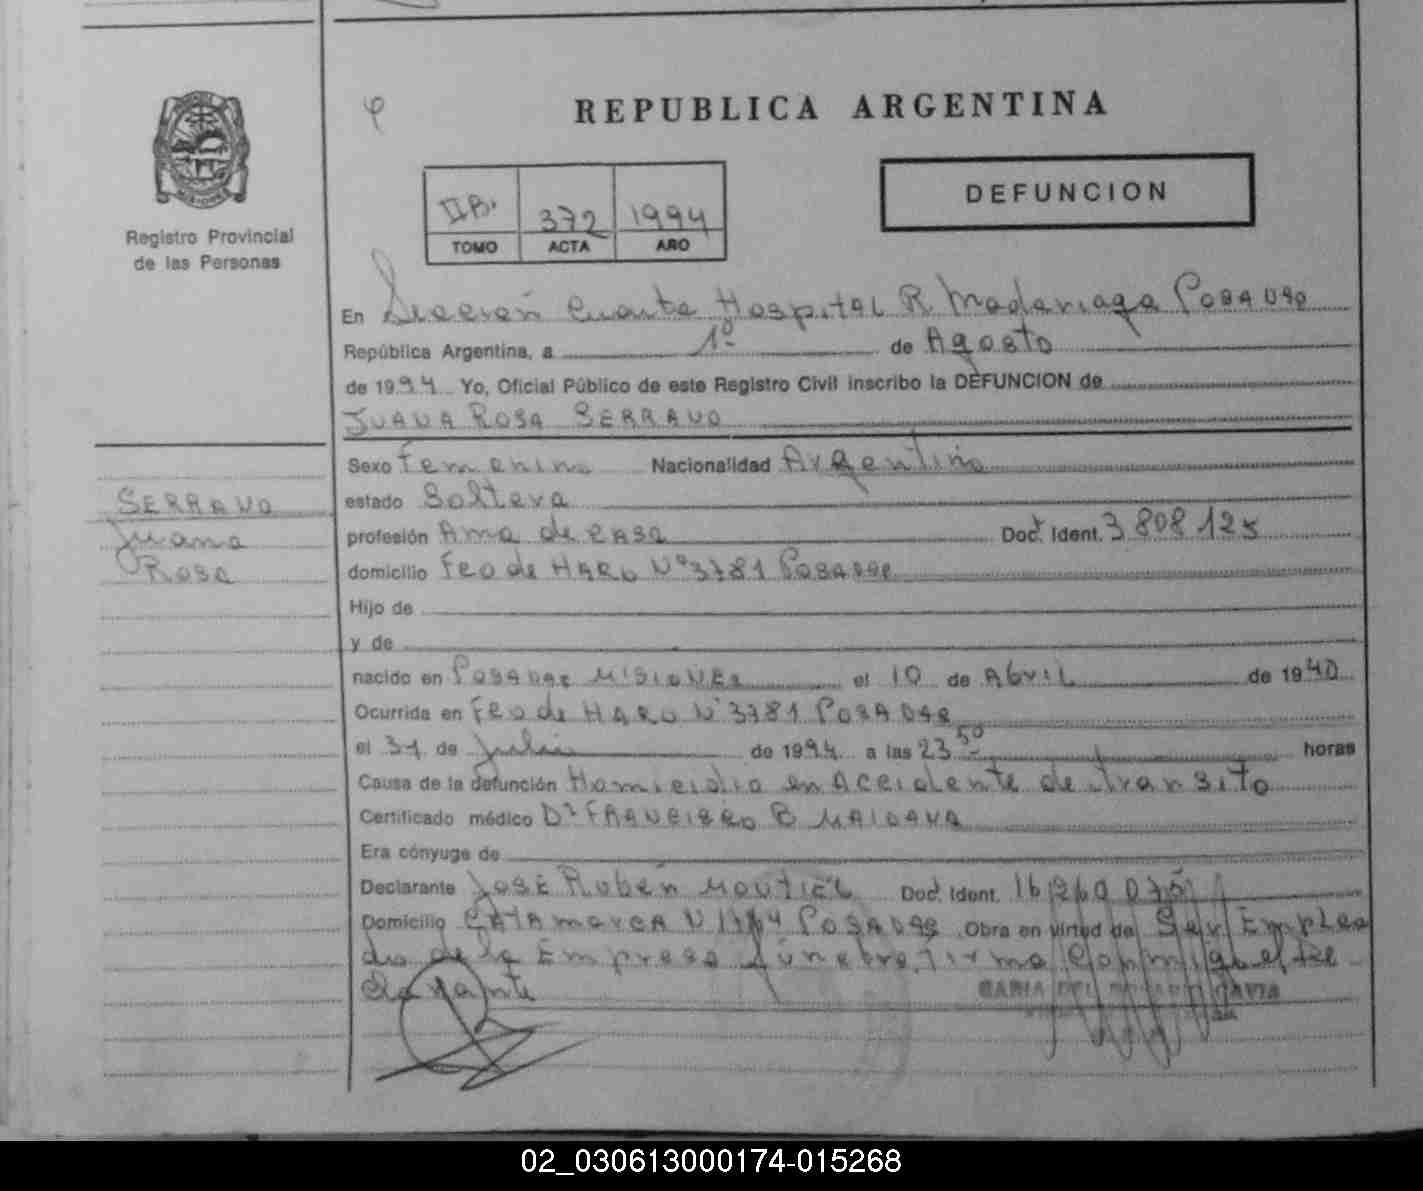 REPUBLICA ARGENTINA
DEFUNCION
II B. 372 1994
TOMO ACTA AÑO
Registro Provincial
de las Personas
En Sección Cuarta Hospital R Madariaga Posadas
República Argentina, a 1º de Agosto
de 1994 Yo, Oficial Público de este Registro Civil inscribo la DEFUNCION de
JUANA ROSA SERRANO
Sexo Femenino Nacionalidad Argentina
SERRANO
Juana
Rosa
estado Soltera
profesión Ama de casa Doct. Ident. 3.808.125
domicilio Fco de HARO Nº 3781 Posadas
Hijo de
y de
nacido en Posadas Misiones el 10 de Abril de 1940
Ocurrida en Fco de HARO Nº 3781 Posadas
el 31 de Julio de 1994 a las 23 50 horas
Causa de la defunción Homicidio en Accidente de transito
Certificado médico Dr FRANCISCO B MAIDANA
Era cónyuge de
Declarante José Rubén MONTIEL Doct. Ident.
Domicilio CATAMARCA N Posadas Obra en virtud de Ser Emplea
do de la Empresa fúnebre, firma conmigo el de
clarante
02_030613000174-015268